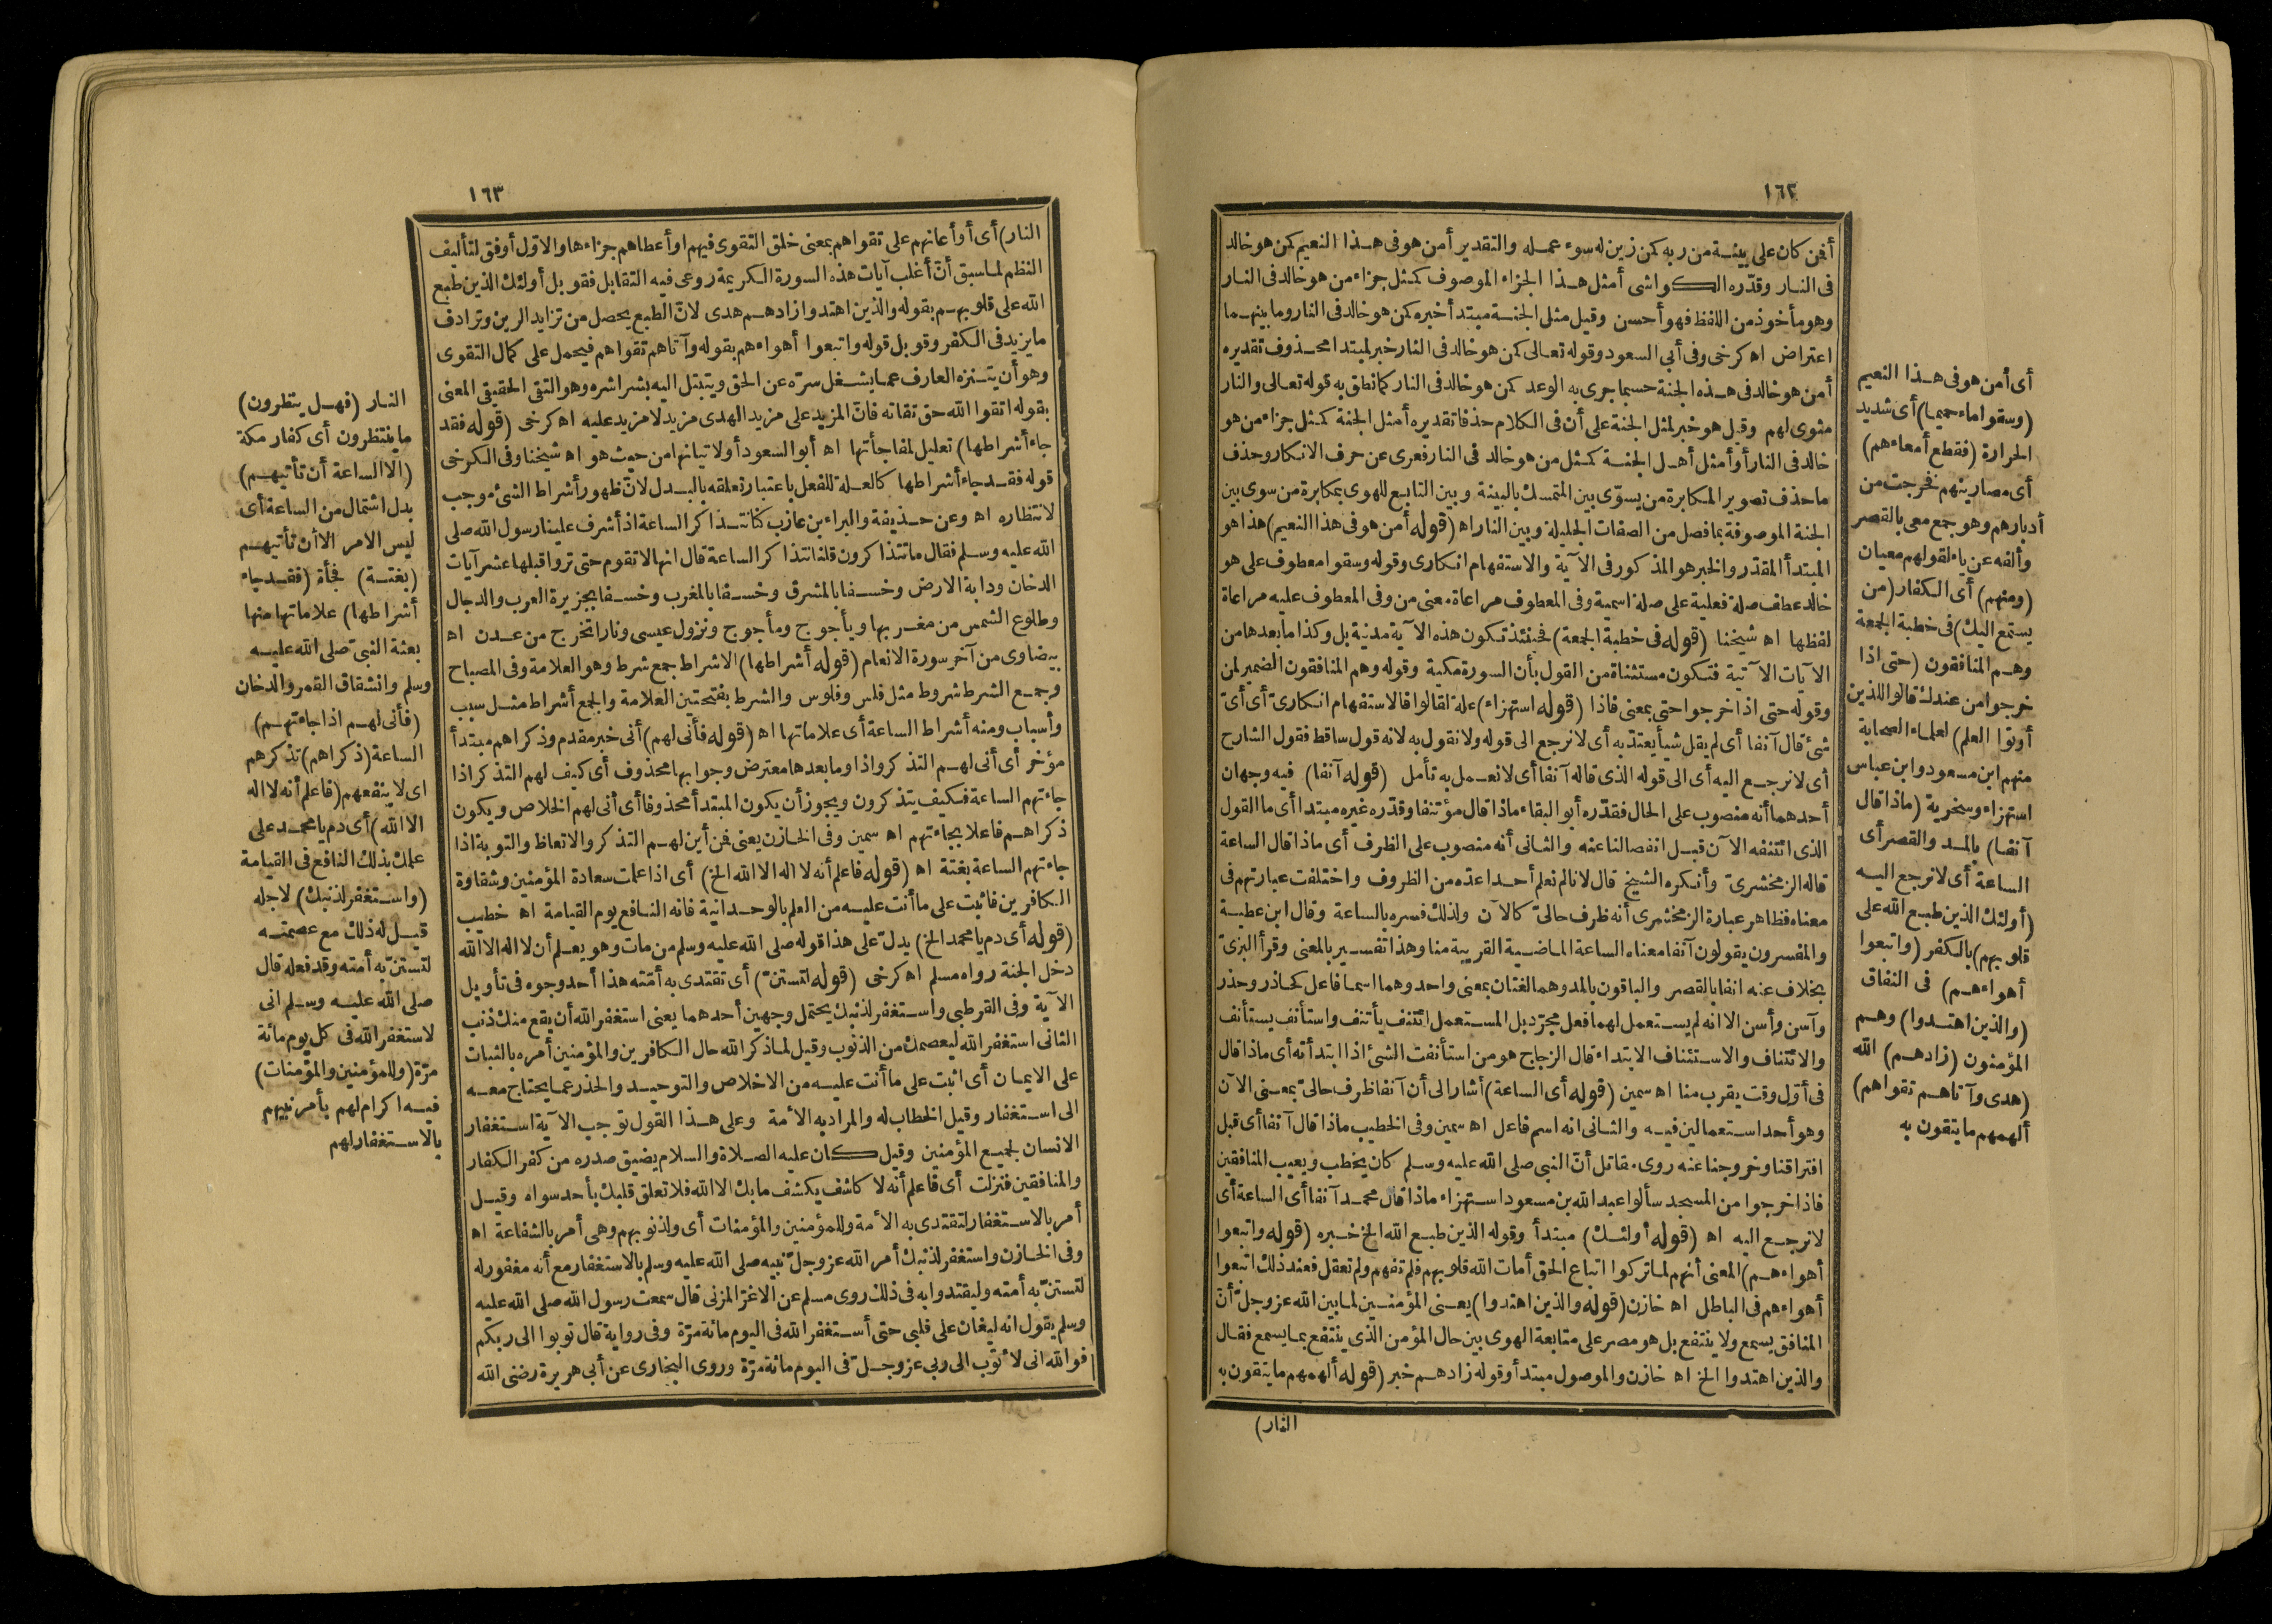 ١٦٢
أفمن كان على بينة من ربه كمن زين له سوء عمله والتقدير أمن هو فى هذا النعيم كمن هو خالد
فى النار وقدّره الكواشى أمثل هذا الجزاء الموصوف كمثل جزاء من هو خالد فى النار
وهو مأخوذ من اللفظ فهو أحسن وقيل مثل الجنة مبتدأ خبره كمن هو خالد فى النار وما بينهما
اعتراض اه كرخى وفى أبى السعود وقوله تعالى كمن هو خالد فى النار خبر لمبتدا محذوف تقديره
أمن هو خالد فى هذه الجنة حسبما جرى به الوعد كمن هو خالد فى النار كما نطق به قوله تعالى والنار
مثوى لهم وقيل هو خبر لمثل الجنة على أن فى الكلام حذفا تقديره أمثل الجنة كمثل جزاء من هو
خالد فى النار أو أمثل أهل الجنة كمثل من هو خالد فى النار فعرى عن حرف الانكار وحذف
ما حذف تصوير المكابرة من يسوّى بين المتمسك بالبينة وبين التابع للهوى بمكابرة من سوى بين
الجنة الموصوفة بما فصل من الصفات الجليلة وبين النار اه (قوله أمن هو فى هذا النعيم) هذا هو
المبتدأ المقدر والخبر هو المذكور فى الآية والاستفهام انكارى وقوله وسقوا معطوف على هو
خالد عطف صلة فعلية على صلة اسمية وفى المعطوف مراعاة معنى من وفى المعطوف عليه مراعاة
لفظها اه شيخنا (قوله فى خطبة الجمعة) فحينئذ تكون هذه الآية مدنية بل وكذا ما بعدها من
الآيات الآتية فتكون مستثناة من القول بأن السورة مكية وقوله وهم المنافقون الضمير لمن
وقوله حتى اذا خرجوا حتى بمعنى فاذا (قوله استهزاء) علة لقالوا فالاستفهام انكارىّ أى أىّ
شئ قال آنفا أى لم يقل شيأ يعتدّ به أى لا نرجع الى قوله ولا نقول به لانه قول ساقط فقول الشارح
أى لا نرجع اليه أى الى قوله الذى قاله آنفا أى لا نعمل به تأمل (قوله آنفا) فيه وجهان
أحدهما أنه منصوب على الحال فقدّره أبو البقاء ماذا قال مؤتنفا وقدّره غيره مبتدا أى ما القول
الذى ائتنفه الآن قبل انفصالنا عنه والثانى أنه منصوب على الظرف أى ماذا قال الساعة
قاله الزمخشرىّ وأنكره الشيخ قال لانا لم نعلم أحدا عدّه من الظروف واختلفت عبارتهم فى
معناه فظاهر عبارة الزمخشرى أنه ظرف حالىّ كالآن ولذلك فسره بالساعة وقال ابن عطية
والمفسرون يقولون آنفا معناه الساعة الماضية القريبة منا وهذا تفسير بالمعنى وقرأ البزىّ
بخلاف عنه انفا بالقصر والباقون بالمد وهما لغتان بمعنى واحد وهما اسما فاعل كحاذر وحذر
وآسن وأسن الا انه لم يستعمل لهما فعل مجرّد بل المستعمل ائتنف يأتنف واستأنف يستأنف
والائتناف والاستئناف الابتداء قال الزجاج هو من استأنفت الشئ اذا ابتدأته أى ماذا قال
فى أوّل وقت يقرب منا اه سمين (قوله أى الساعة) أشار الى أن آنفا ظرف حالىّ بمعنى الآن
وهو أحد استعمالين فيه والثانى انه اسم فاعل اه سمين وفى الخطيب ماذا قال آنفا أى قبل
افتراقنا وخروجنا عنه روى مقاتل أنّ النبى صلى الله عليه وسلم كان يخطب ويعيب المنافقين
فاذا خرجوا من المسجد سألوا عبد الله بن مسعود استهزاء ماذا قال محمد آنفا أى الساعة أى
لا نرجع اليه اه (قوله أولئك) مبتدأ وقوله الذين طبع الله الخ خبره (قوله واتبعوا
أهواءهم) المعنى أنهم لما تركوا اتباع الحق أمات الله قلوبهم فلم تفهم ولم تعقل فعند ذلك اتبعوا
أهواءهم فى الباطل اه خازن (قوله والذين اهتدوا) يعنى المؤمنين لما بين الله عز وجلّ أنّ
المنافق يسمع ولا ينتفع بل هو مصر على متابعة الهوى بين حال المؤمن الذى ينتفع بما يسمع فقال
والذين اهتدوا الخ اه خازن والموصول مبتدأ وقوله زادهم خبر (قوله ألهمهم ما يتقون به
النار)
أى أمن هو فى هذا النعيم
(وسقوا ماء حميما) أى شديد
الحرارة (فقطع أمعاءهم)
أى مصارينهم فخرجت من
أدبارهم وهو جمع معى بالقصر
وألفه عن ياء لقولهم معيان
(ومنهم) أى الكفار (من
يستمع اليك) فى خطبة الجمعة
وهم المنافقون (حتى اذا
خرجوا من عندك قالوا للذين
أوتوا العلم) لعلماء الصحابة
منهم ابن مسعود وابن عباس
استهزاء وسخرية (ماذا قال
آنفا) بالمد والقصر أى
الساعة أى لا نرجع اليه
(أولئك الذين طبع الله على
قلوبهم) بالكفر (واتبعوا
أهواءهم) فى النفاق
(والذين اهتدوا) وهم
المؤمنون (زادهم) الله
(هدى وآتاهم تقواهم)
ألهمهم ما يتقون به
١٦٣
النار) أى أو أعانهم على تقواهم بمعنى خلق التقوى فيهم او أعطاهم جزاءها والاوّل أوفق لتأليف
النظم لما سبق أنّ أغلب آيات هذه السورة الكريمة روعى فيه التقابل فقوبل أولئك الذين طبع
الله على قلوبهم بقوله والذين اهتدوا زادهم هدى لانّ الطبع يحصل من تزايد الرين وترادف
ما يزيد فى الكفر وقوبل قوله واتبعوا أهواءهم بقوله وآتاهم تقواهم فيحمل على كمال التقوى
وهو أن يتنزه العارف عما يشغل سرّه عن الحق ويتبتل اليه بشراشره وهو التقى الحقيقى المعنى
بقوله اتقوا الله حق تقاته فانّ المزيد على مزيد الهدى مزيد لا مزيد عليه اه كرخى (قوله فقد
جاء أشراطها) تعليل لمفاجأتها اه أبو السعود أو لاتيانها من حيث هو اه شيخنا وفى الكرخى
قوله فقد جاء أشراطها كالعلة للفعل باعتبار تعلقه بالبدل لانّ ظهور أشراط الشئ موجب
لانتظاره اه وعن حذيفة والبراء بن عازب كنا نتذاكر الساعة اذ أشرف علينا رسول الله صلى
الله عليه وسلم فقال ما تتذاكرون قلنا نتذاكر الساعة قال انها لا تقوم حتى تروا قبلها عشر آيات
الدخان ودابة الارض وخسفا بالمشرق وخسفا بالمغرب وخسفا بجزيرة العرب والدجال
وطلوع الشمس من مغربها ويأجوج ومأجوج ونزول عيسى ونارا تخرج من عدن اه
بيضاوى من آخر سورة الانعام (قوله أشراطها) الاشراط جمع شرط وهو العلامة وفى المصباح
وجمع الشرط شروط مثل فلس وفلوس والشرط بفتحتين العلامة والجمع أشراط مثل سبب
وأسباب ومنه أشراط الساعة أى علاماتها اه (قوله فأنى لهم) أنى خبر مقدم وذكراهم مبتدأ
مؤخر أى أنى لهم التذكر واذا وما بعدها معترض وجوابها محذوف أى كيف لهم التذكر اذا
جاءتهم الساعة فكيف يتذكرون ويجوز أن يكون المبتدأ محذوفا أى أنى لهم الخلاص ويكون
ذكراهم فاعلا بجاءتهم اه سمين وفى الخازن يعنى فمن أين لهم التذكر والاتعاظ والتوبة اذا
جاءتهم الساعة بغتة اه (قوله فاعلم أنه لا اله الا الله الخ) أى اذا علمت سعادة المؤمنين وشقاوة
الكافرين فاثبت على ما أنت عليه من العلم بالوحدانية فانه النافع يوم القيامة اه خطيب
(قوله أى دم يا محمد الخ) يدلّ على هذا قوله صلى الله عليه وسلم من مات وهو يعلم أن لا اله الا الله
دخل الجنة رواه مسلم اه كرخى (قوله لتستنّ) أى تقتدى به أمّته هذا أحد وجوه فى تأويل
الآية وفى القرطبى واستغفر لذنبك يحتمل وجهين أحدهما يعنى استغفر الله أن يقع منك ذنب
الثانى استغفر الله ليعصمك من الذنوب وقيل لما ذكر الله حال الكافرين والمؤمنين أمره بالثبات
على الايمان أى اثبت على ما أنت عليه من الاخلاص والتوحيد والحذر عما يحتاج معه
الى استغفار وقيل الخطاب له والمراد به الأمة وعلى هذا القول توجب الآية استغفار
الانسان لجميع المؤمنين وقيل كان عليه الصلاة والسلام يضيق صدره من كفر الكفار
والمنافقين فنزلت أى فاعلم أنه لا كاشف يكشف ما بك الا الله فلا تعلق قلبك بأحد سواه وقيل
أمر بالاستغفار لتقتدى به الأمة وللمؤمنين والمؤمنات أى ولذنوبهم وهى أمر بالشفاعة اه
وفى الخازن واستغفر لذنبك أمر الله عز وجلّ نبيه صلى الله عليه وسلم بالاستغفار مع أنه مغفور له
لتستنّ به أمته وليقتدوا به فى ذلك روى مسلم عن الاغرّ المزنى قال سمعت رسول الله صلى الله عليه
وسلم يقول انه ليغان على قلبى حتى أستغفر الله فى اليوم مائة مرّة وفى رواية قال توبوا الى ربكم
فوالله انى لأتوب الى ربى عز وجلّ فى اليوم مائة مرّة وروى البخارى عن أبى هريرة رضى الله
النار (فهل ينظرون)
ما ينتظرون أى كفار مكة
(الا الساعة أن تأتيهم)
بدل اشتمال من الساعة أى
ليس الامر الا أن تأتيهم
(بغتة) فجأة (فقد جاء
أشراطها) علاماتها منها
بعثة النبىّ صلى الله عليه
وسلم وانشقاق القمر والدخان
(فأنى لهم اذا جاءتهم)
الساعة (ذكراهم) تذكرهم
اى لا ينفعهم (فاعلم أنه لا اله
الا الله) أى دم يا محمد على
علمك بذلك النافع فى القيامة
(واستغفر لذنبك) لاجله
قيل له ذلك مع عصمته
لتستنّ به أمته وقد فعله قال
صلى الله عليه وسلم انى
لاستغفر الله فى كل يوم مائة
مرّة (وللمؤمنين والمؤمنات)
فيه اكرام لهم بأمر نبيهم
بالاستغفار لهم